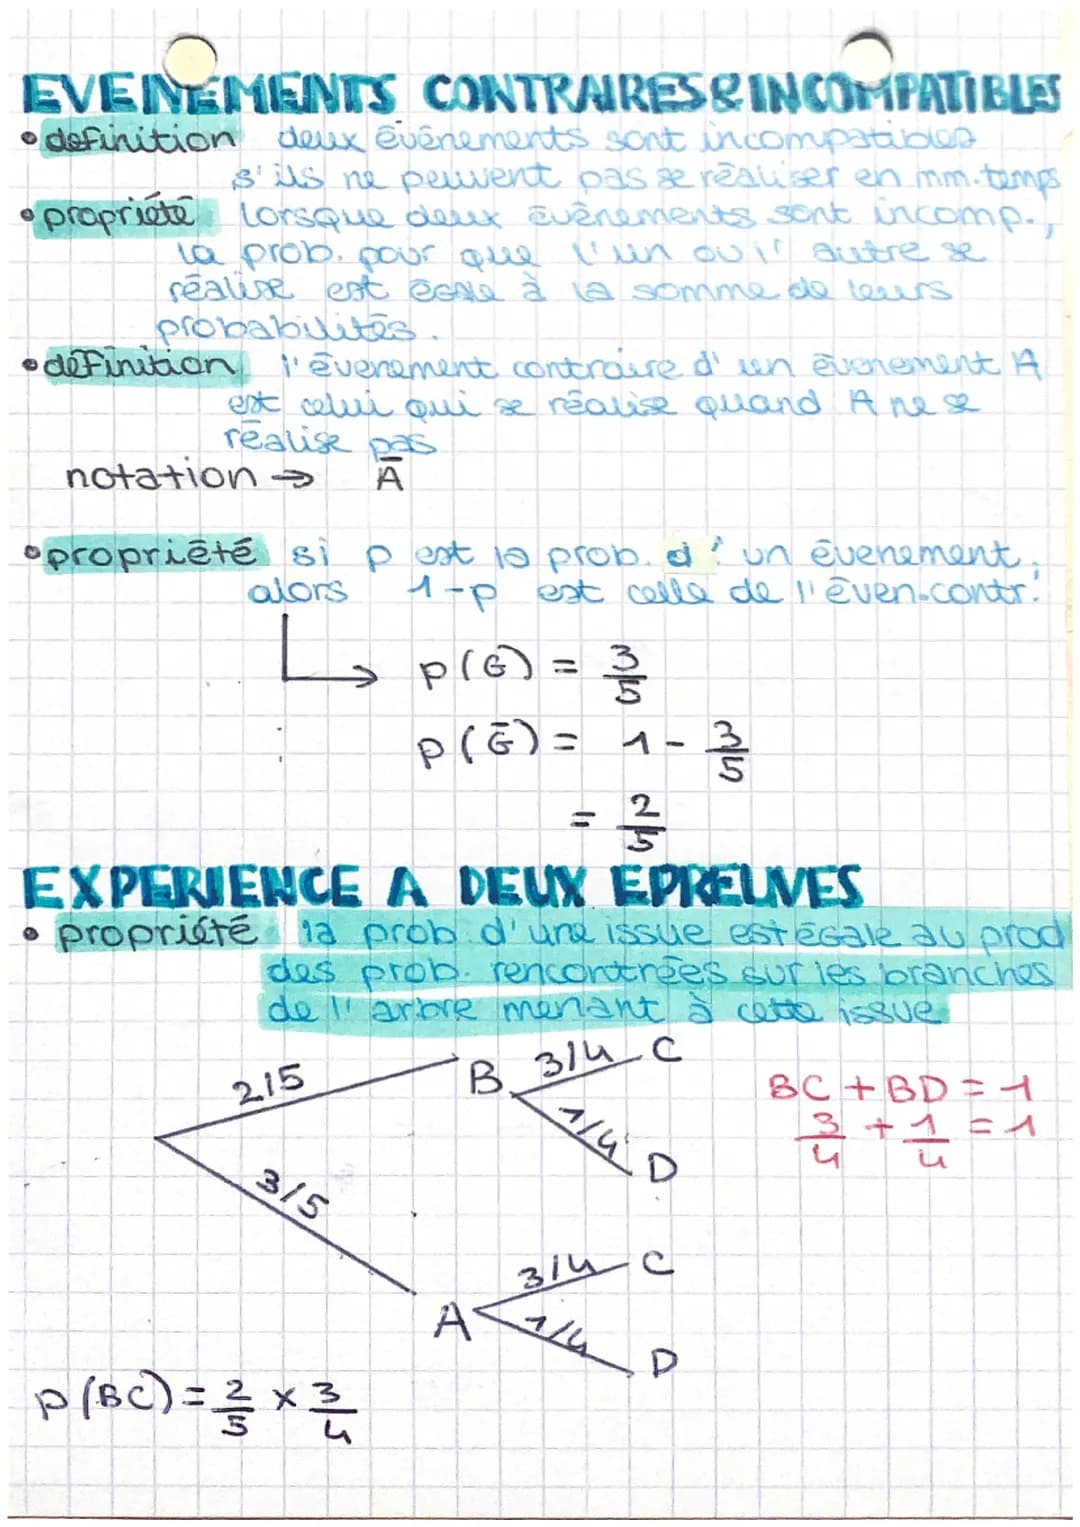 EVENEMENTS CONTRAIRES & INCOMPATIBLES
• definition deux évênements sont incompatibles
s'ils ne peuvent pas se réaliser en mm. temps
• propriété Lorsque deux évênements sont incomp.,
la prob. pour que l'un ou l'autre se
réalise est égale à la somme de leurs
probabilités.
• definition l'évenement contraire d'un évenement A
est celui qui se réalise quand A ne se
réalise pas
notation → Ā
• propriété si p est la prob. d'un évenement,
alors 1-p est celle de l'éven.contr.
p(G) = 3/5
p(Ḡ) = 1 - 3/5
= 2/5
EXPERIENCE A DEUX EPREUVES
• propriété la prob. d'une issue est égale au prod
des prob. rencontrées sur les branches
de l'arbre menant à cette issue
2/5 B 3/4 C
1/4 D
BC + BD = 1
3/4 + 1/4 = 1
3/5 A 3/4 C
1/4 D
p(BC) = 2/5 × 3/4